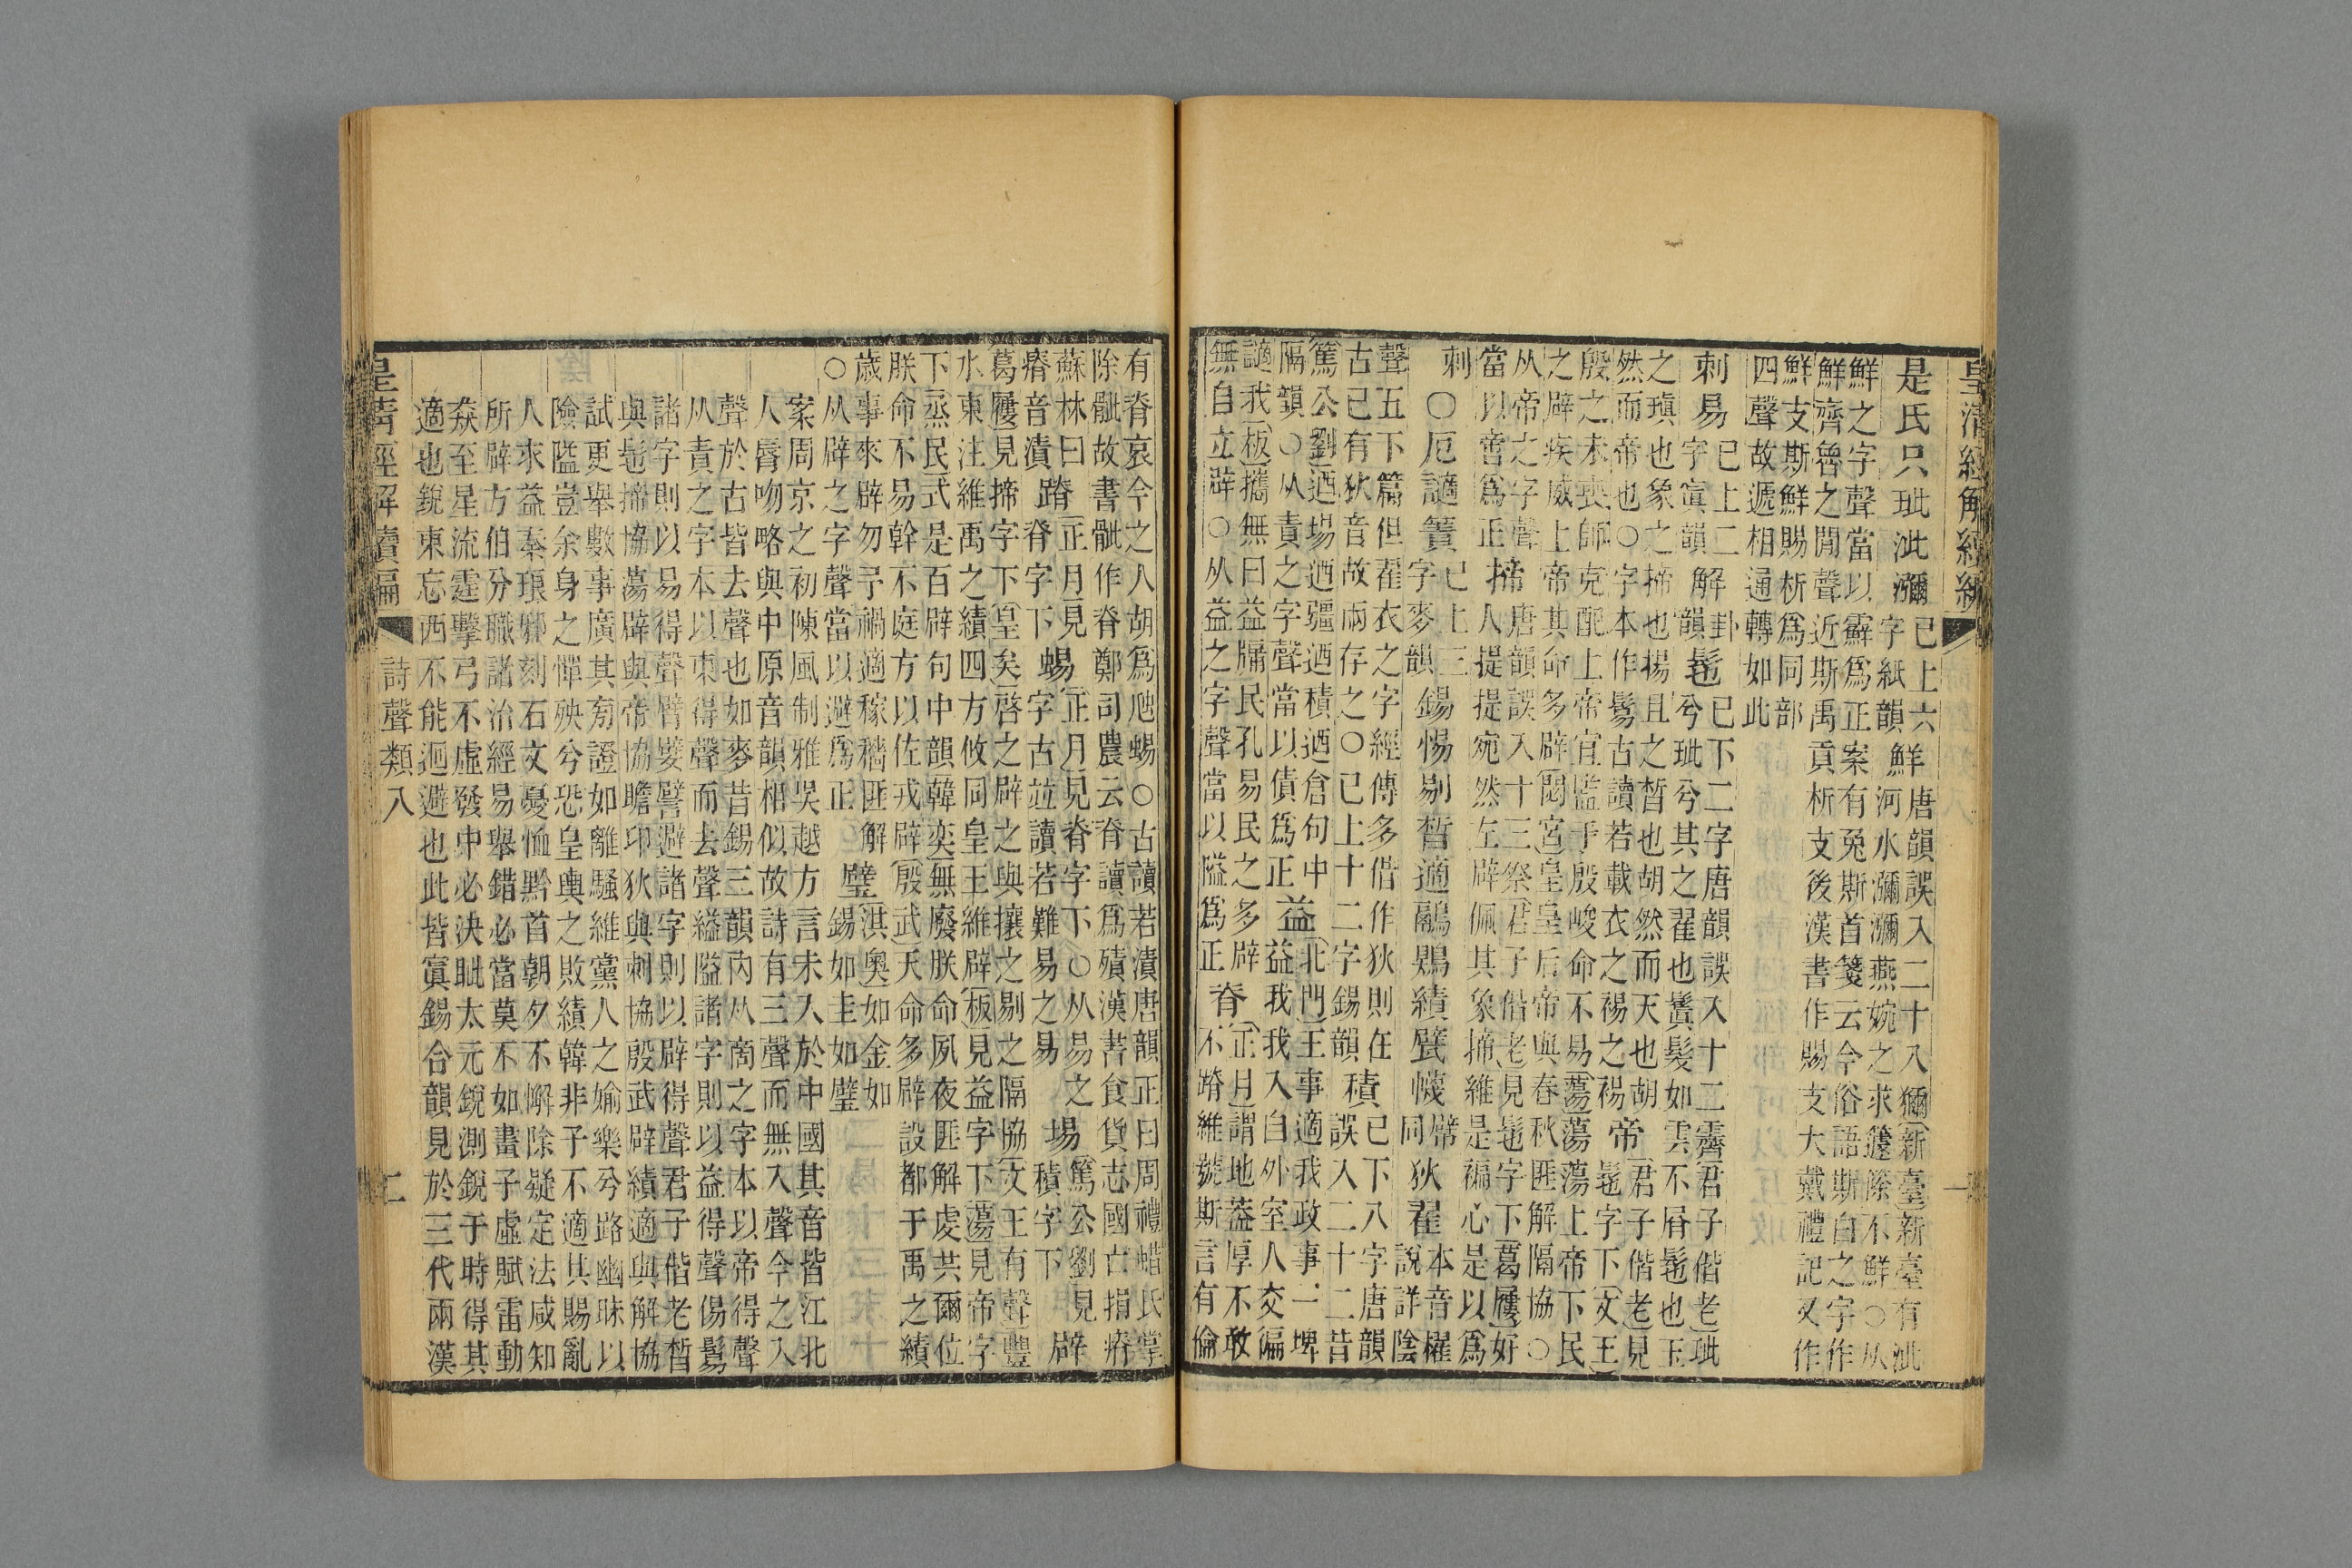 皇清經解續編
是氏只玼泚瀰
已上六
字紙韻
鮮
唐韻誤入二十八獮新臺新臺有泚
河水瀰瀰燕婉之求籧篨不鮮○从
鮮之字聲當以癬爲正案有兔斯首箋云今俗語斯白之字作
鮮齊魯之閒聲近斯禹貢析支後漢書作賜支大戴禮記又作
鮮支斯鮮賜析爲同部
四聲故遞相通轉如此
刺易
已上二
字寘韻
解
卦
韻
髢
已下二字唐韻誤入十二霽君子偕老玼
兮玼兮其之翟也鬒髮如雲不屑髢也玉
之瑱也象之揥也揚且之皙也胡然而天也胡
然而帝也○字本作鬄古讀若載衣之裼之裼
帝
君子偕老見
髢字下文王
殷之未喪師克配上帝宜監于殷峻命不易蕩蕩蕩上帝下民
之辟疾威上帝其命多辟閟宮皇皇后帝與春秋匪解隔協○
从帝之字聲
當以啻爲正
揥
唐韻誤入十三祭君子偕老見髢字下葛屨好
人提提宛然左辟佩其象揥維是褊心是以爲
刺○厄謫簀
已上三
字麥韻
錫惕剔皙適鷊鶂績甓幭
同
狄翟
本音櫂
說詳陰
聲五下篇但翟衣之字經傳多借作狄則在
古已有狄音故兩存之○已上十二字錫韻
積
已下八字唐韻
誤入二十二昔
篤公劉迺埸迺疆迺積迺倉句中
隔韻○从責之字聲當以債爲正
益
北門王事適我政事一埤
益我我入自外室人交徧
謫我板攜無曰益牖民孔易民之多辟
無自立辟○从益之字聲當以隘爲正
脊
正月謂地蓋厚不敢
不蹐維號斯言有倫
有脊哀今之人胡爲虺蜴○古讀若漬唐韻正曰周禮蜡氏掌
除骴故書骴作脊鄭司農云脊讀爲殰漢書食貨志國亡捐瘠
蘇林曰
瘠音漬
蹐
正月見
脊字下
蜴
正月見脊字下○从易之
字古並讀若難易之易
埸
篤公劉見
積字下
辟
葛屨見揥字下皇矣啓之辟之與攘之剔之隔協文王有聲豐
水東注維禹之績四方攸同皇王維辟板見益字下蕩見帝字
下烝民式是百辟句中韻韓奕無廢朕命夙夜匪解虔共爾位
朕命不易榦不庭方以佐戎辟殷武天命多辟設都于禹之績
歲事來辟勿予禍適稼穡匪解
○从辟之字聲當以避爲正
璧
淇奧如金如
錫如圭如璧
案周京之初陳風制雅吳越方言未入於中國其音皆江北
人脣吻略與中原音韻相似故詩有三聲而無入聲今之入
聲於古皆去聲也如麥昔錫三韻內从啇之字本以帝得聲
从責之字本以朿得聲而去聲縊隘諸字則以益得聲傷鬄
諸字則以易得聲臂嬖譬避諸字則以辟得聲君子偕老皙
與髢揥協蕩辟與帝協瞻卬狄與刺協殷武辟績適與解協
試更舉數事廣其旁證如離騷維黨人之媮樂兮路幽昧以
險隘豈余身之憚殃兮恐皇輿之敗績韓非子不適其賜亂
人求益秦琅邪刻石文憂恤黔首朝夕不懈除疑定法咸知
所辟方伯分職諸治經易舉錯必當莫不如畫子虛賦雷動
猋至星流霆擊弓不虛發中必決眦太元銳測銳于時得其
適也銳東忘西不能迴避也此皆寘錫合韻見於三代兩漢
皇清經解續編
詩聲類八
二